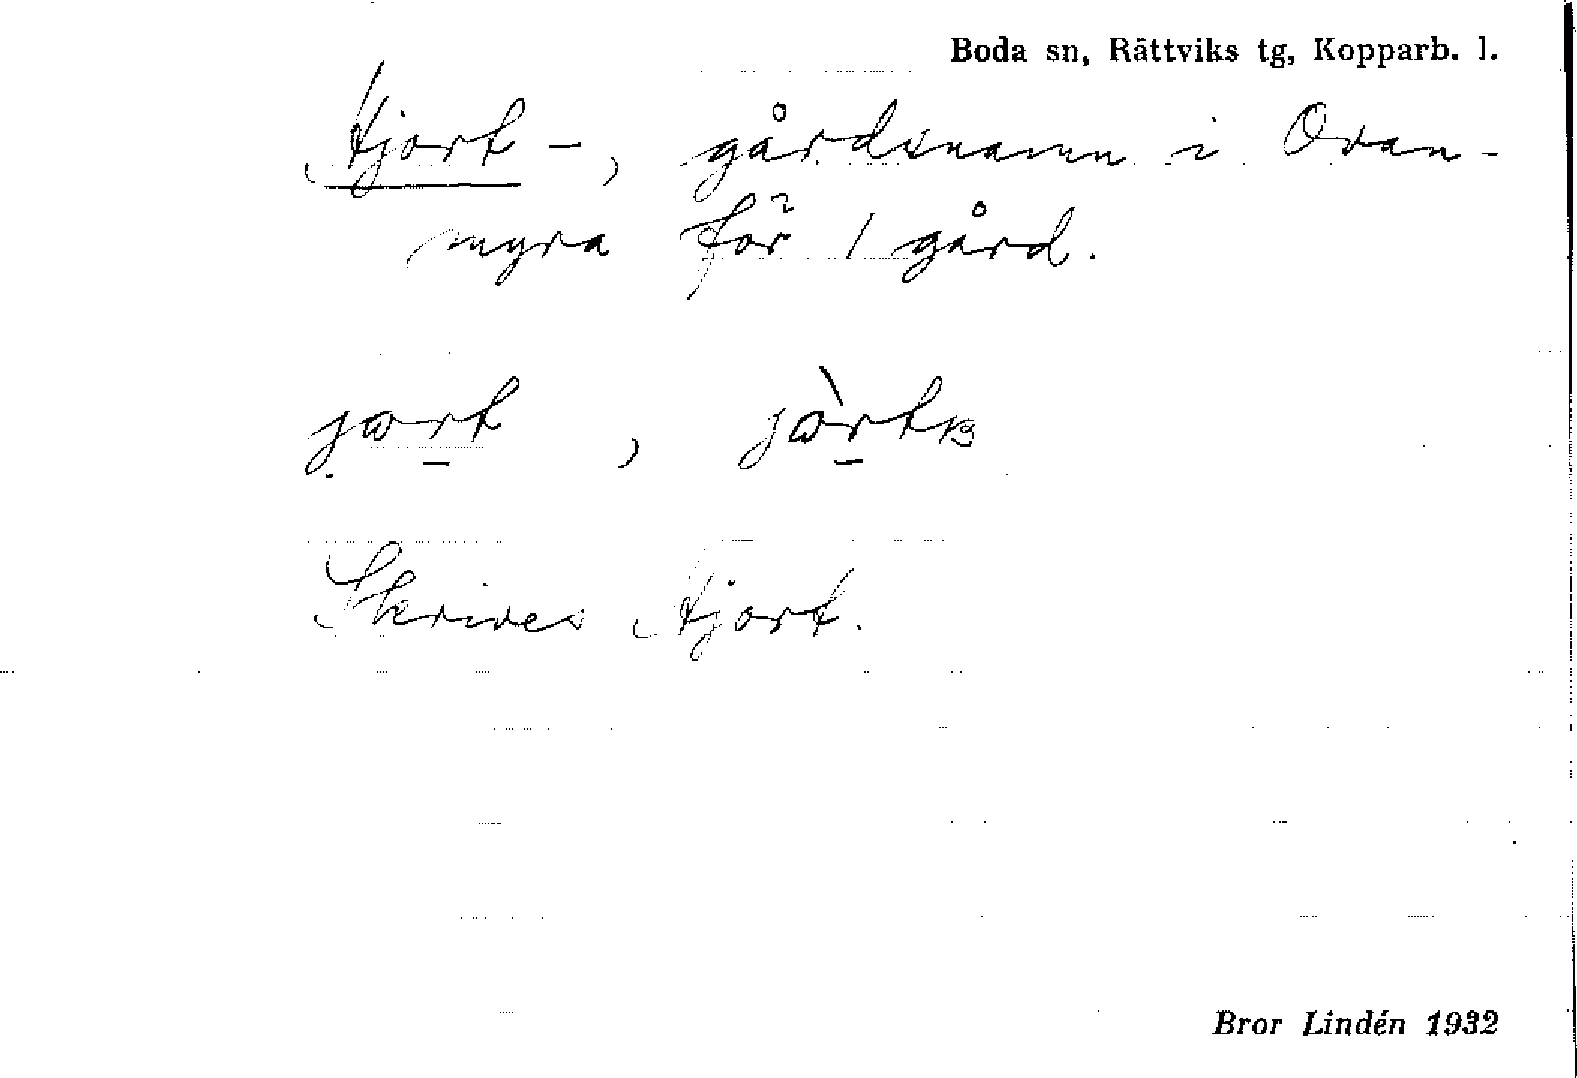 Boda sn, Rättviks tg, Kopparb. l.
Hjort-, gårdsnamn i Ovan-
myra för 1 gård.
Skrives Hjort.
Bror Lindén 1932